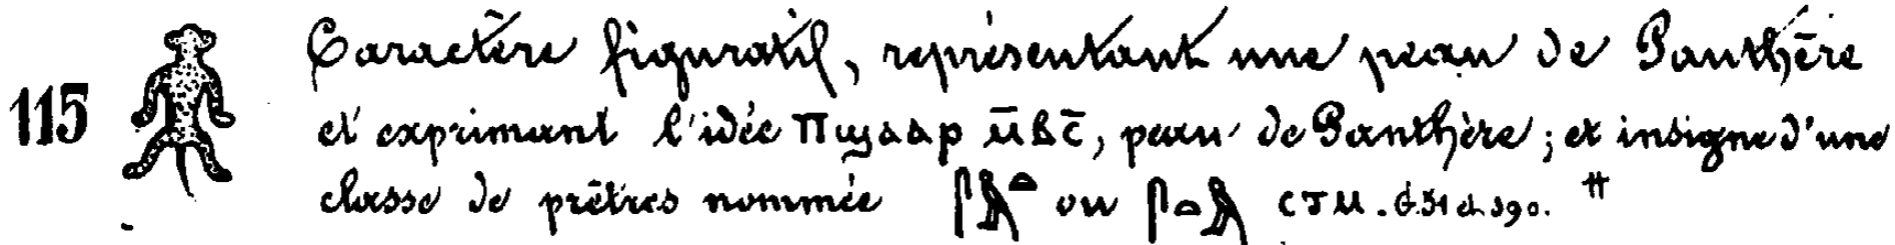 115 Caractère figuratif, représentant une peau de Panthère
et exprimant l'idée Ⲡϣⲁⲁⲣ ⲙ̄ⲃⲥ̄, peau de Panthère; et insigne d'une
classe de prêtres nommée ou ⲤⲦⲘ. G. 31 et 390. #